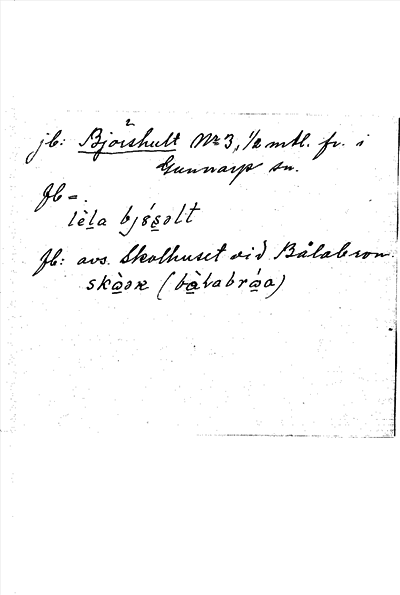 jb: Bjorshult № 3, 1/2 mtl. fr. i
Gunnarp sn.
fb =.
lèla bjósolt
fb: avs. Skolhuset vid Bålabron.
(bàlabróa)